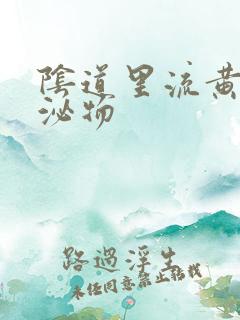 陰道里流黃
泌物
路過浮生
未经同意禁止转载